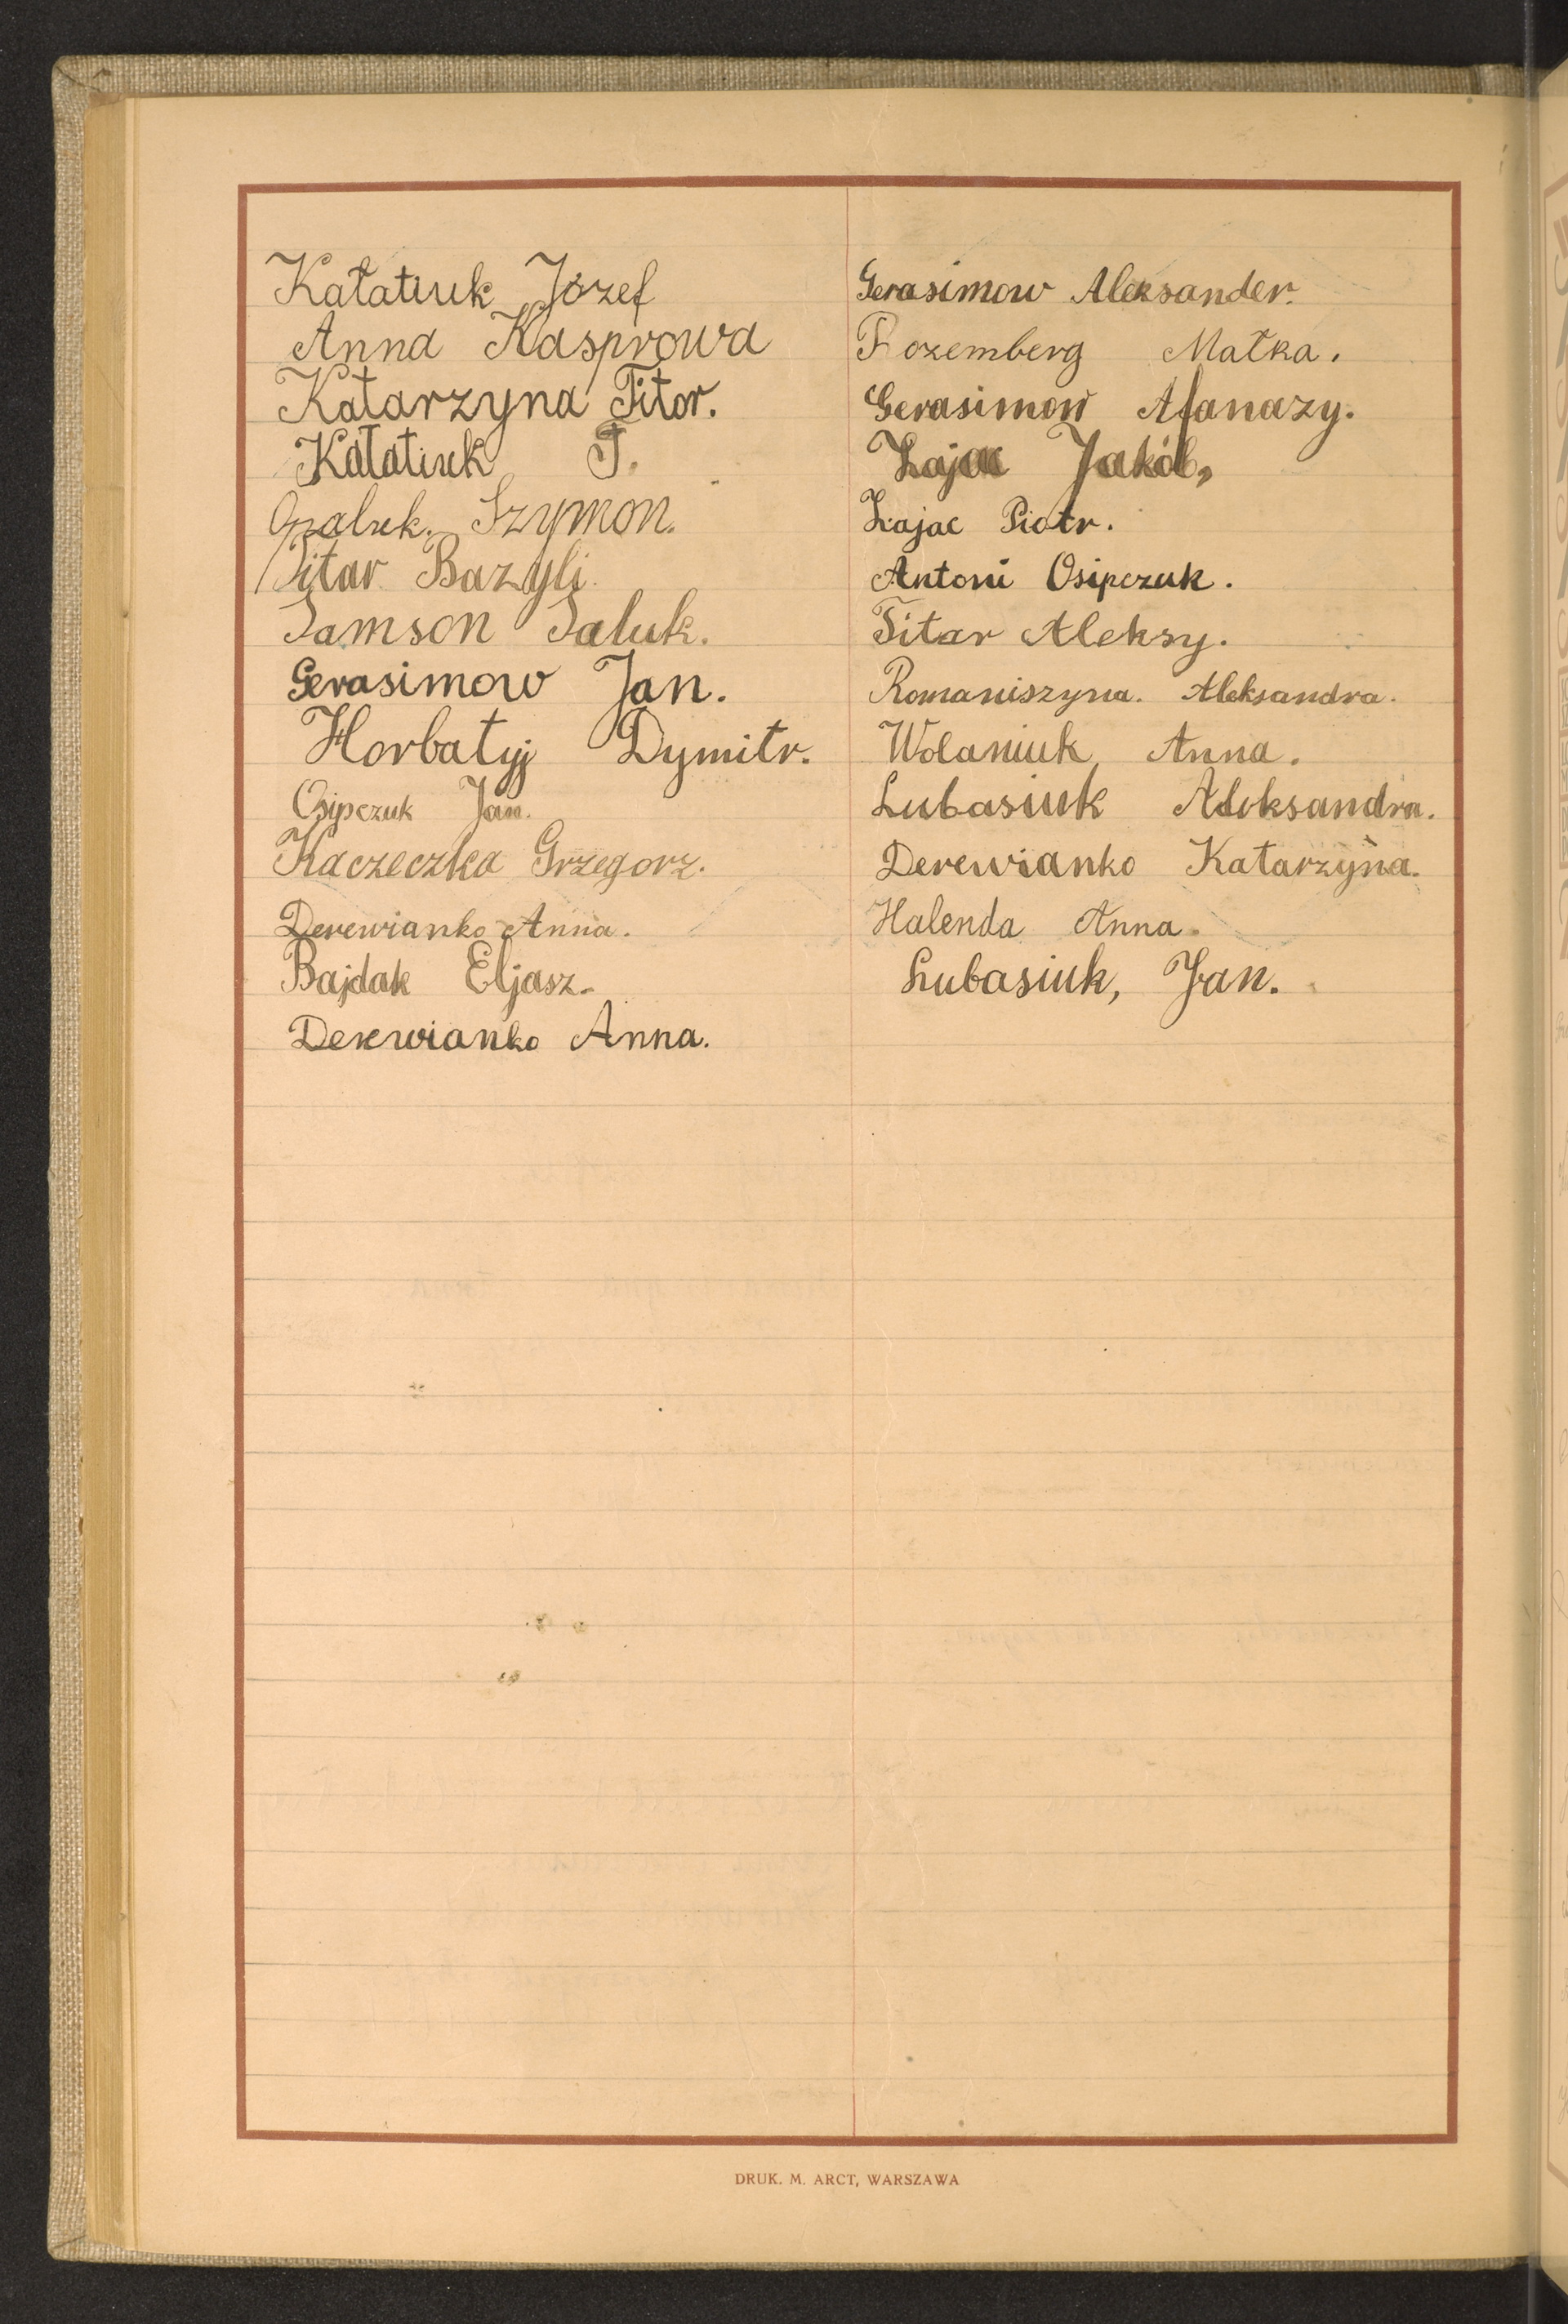 Kałatiuk Józef
Anna Kasprowa
Katarzyna Titor.
Kałatiuk J.
Opaluk. Szymon.
Titar Bazyli.
Samson Saluk.
Gerasimow Jan.
Horbatyj Dymitr.
Osipczuk Jan.
Kaczeczka Grzegorz.
Derewianko Anna.
Bajdak Eljasz.
Derewianko Anna.
Gerasimow Aleksander.
Rozemberg Małka.
Gerasimow Afanazy.
Zając Jakób,
Zajac Piotr.
Antoni Osipczuk.
Titar Aleksy.
Romaniszyna. Aleksandra.
Wolaniuk, Anna.
Lubasiuk Aleksandra.
Derewianko Katarzyna.
Halenda Anna.
Lubasiuk, Jan.
DRUK. M. ARCT, WARSZAWA